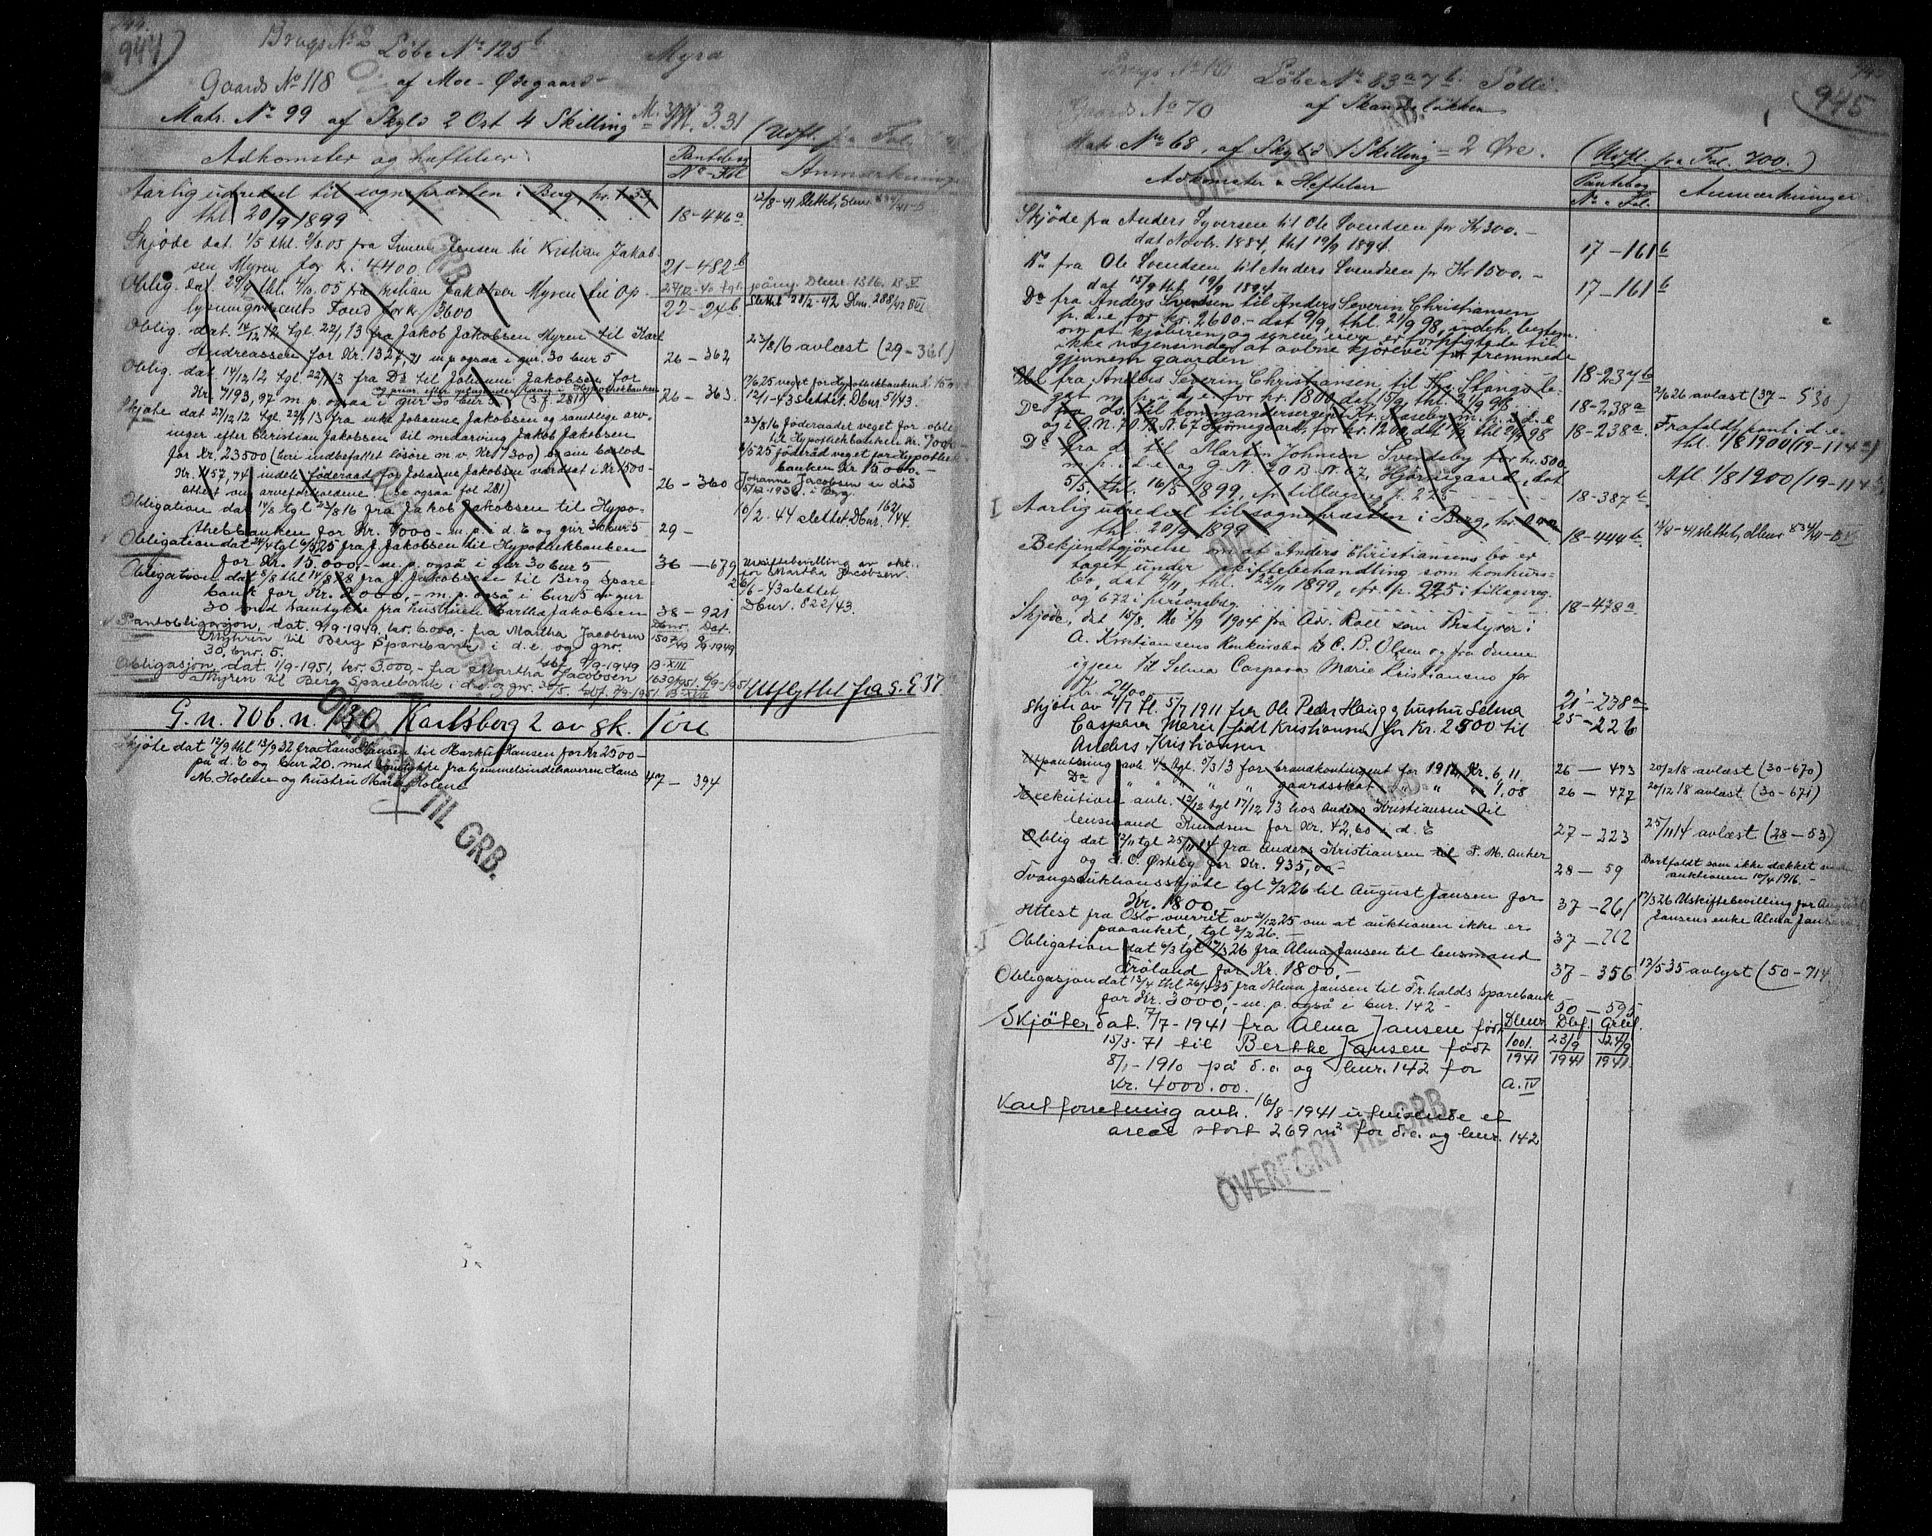 944)
Brugs No 2 Löbe No 125 b Myra
Gaards No 118 af Moe-Ödegaard
Matr. No 99 af Skyld 2 Ort 4 Skilling = M. 3.31 (Udfl. fra Fol.
Adkomster og Heftelser. Pantebog No - Fol Anmærkninger
Aarlig udredsel til sognepræsten i Berg, kr. 1.33 12/8-41 slettet,
thl 20/9 1899 18-446a
Skjöde dat. 1/5 thl. 2/5 05 fra Simen Jensen til Kristian Jakob
sen Myren for kr. 4400. 21-482b
Oblig. dat. 29/9 thl. 4/10 05 fra Kristian Jakobsen Myren til Op-
lysningsvæsenets Fond for kr 3600 22-246
Oblig. dat. 14/12 12 tgl. 22/1 13 fra Jakob Jakobsen Myren til Karl
Andreassen for Kr. 1327,71 m.p. ogsaa i gnr. 30 bnr 5 26-362 23/8 16 avlæst (29-361)
Oblig. dat 14/12 12 tgl. 22/1 13 fra Do til Johanne Jakobsen for
Kr. 7193,97 m.p. ogsaa i gnr 30 bnr 5 26-363 12/1-43 slettet. Dbnr 51/43.
Skjöte dat 27/12 12 tgl. 22/1 13 fra enke Johanne Jakobsen og samtlige arv-
inger efter Christian Jakobsen til medarving Jakob Jakobsen
for Kr. 23500 (heri indbefattet lösöre m.v. Kr 1300) og
Kr. 1157,74 indel. föderaad for Johanne Jakobsen værdsat i Kr 1500-
attest om arveforholdene. (Se ogsaa fol 281) 26-360 Johanne Jacobsen er död
5/12-1930 i Berg.
Obligation dat 14/8 tgl 23/8 16 fra Jakob Jakobsen til Hypo- 10/2-44 slettet Dbnr. 162/44.
thekbanken for Kr. 7000- m.p. i d.E og gnr 30 bnr 5 29-
Obligation dat 24/4 tgl 6/5 25 fra J. Jakobsen til Hypothekbanken
for Kr. 15.000,- m.p. også i gnr 30 bnr 5 36-679 Uskiftebevilling av
for Martha Jacobsen
Obligation dat 8/8 thl 14/8 28 fra J. Jakobsen til Berg Spare-
bank for Kr. 2000,- m.p. også i bnr 5 av gnr 26/6-43 slettet,
30 med samtykke fra hustruen Martha Jakobsen 38-921 Dbnr. 822/43.
Pantobligasjon, dat. 9/9-1949, kr. 6000,- fra Martha Jacobsen Dbnr. Dat.
Myhren til Berg Sparebank i d.e. og gnr. 1507/49 9/9-1949
30, bnr. 5. 9/9-1949 B-XIII
Obligasjon dat. 1/9-1951, kr. 3,000,- fra Martha Jacobsen 1630/1951
Myren til Berg Sparebank i d.e. og gnr. 30/5 B-XVII Utflyttet fra S. 937
G.n. 70 b.n. 130 Karlsberg 2 av sk. 1 öre
Skjöte dat 12/9 thl 13/9 32 fra Hans Hansen til Markus Hansen for Kr 2500-
på d.E og bnr 20. med samtykke fra hjemmelsindehaveren Hans
M. Holene og hustru Maria Holene 47-394
OVERFØRT TIL GRB.
945
Brugs No Löbe No 83 a 7 b. Solli.
Gaards No 70 af Skandselökken
Matr. No 68, af Skyld 1 Skilling = 2 Øre. (Udfl. fra Fol. 700.)
Adkomster & Heftelser Pantebog No - Fol. Anmærkninger
Skjöde fra Anders Syversen til Ole Svendsen for Kr 300.-
dat Novbr. 1884, thl 19/9 1894. 17-161b
Do fra Ole Svendsen til Anders Svendsen for Kr 1500.-
dat 15/9 thl 19/9 1894. 17-161b
Do fra Anders Svendsen til Anders Severin Christiansen
p. d. e for kr. 2600.- dat 9/9, thl. 21/9 98, indeh. bestem.
om at kjöberen og senere eiere er forpligtede til
ikke nogensinde at aabne kjörevei for fremmede
gjennem gaarden 18-237b
Obl fra Anders Severin Christiansen til Stangs le-
gat m.p. i d.e for kr. 1800 dat 15/9 thl 21/9 98. 18-238a 2/6 26 avlæst (37-530)
Do fra ds. til kommandersergent Fr. Kaseby m. p. i d. e
og i G.N. 70 B.N. 67 Hjörnegaard, for kr. 1200, dat 9/9 thl 21/9 98 18-238a. Frafaldt pant i d.e.
thl. 1/8 1900 (19-114a)
Do fra ds til Martin Johnsen Svendsby for kr. 500
m. p. i. d. e og G.N. 70 B.N. 67, Hjörnegaard, dat
5/5, thl. 16/5 1899, 18-387b Afl 1/8 1900 (19-114b)
Aarlig udredsel til sognepræsten i Berg, kr
thl. 20/9 1899 18-444b 12/8-41 slettet, dbnr 834/41-B VI
Bekjendtgjörelse om at Anders Christiansens bo er
taget under skiftebehandling som konkurs-
bo, dat 4/11, thl. 22/11 1899, cfr. p. 225 i tillægsreg.
og 672 i personsbog. 18-478a
Skjøde, dat. 15/8, thl 3/9 1904 fra Adv. Roll som Bestyrer i
A. Kristiansens Konkursbo til C. B. Olsen og fra denne
igjen til Selma Caspara Marie Kristiansens for
Kr. 2400 21-238a
Skjöte av 4/7 tl. 5/7 1911 fra Ole Peder Haug og hustru Selma 25-226
Caspara Marie (födt Kristiansen) for Kr. 2500 til
Anders Kristiansen
Utpantning avh. 4/3 tgl. 5/3 13 for brandkontingent for 1912, Kr. 6,11. 26-473 20/12 18 avlæst (30-670)
Do " " " " gaardsskat " " " 1,08 26-477 20/12 18 avlæst (30-671)
Exekution avh. 12/12 tgl 17/12 13 hos Anders Kristiansen til
lensmand Knudsen for Kr. 42,60 i d.E 27-223 25/11 14 avlæst (28-53)
Oblig dat 12/11 tgl 25/11 14 fra Anders Kristiansen til P. M. Anker
og L. C. Østeby for Kr. 935,00 28-59 Bortfaldt som ikke dækket under
auktionen 10/4 1916.-
Tvangsauktionsskjöte tgl 3/2 26 til August Jansen for
Kr. 1800,- 37-261 17/3 26 Uskiftebevilling for August
Jansens enke Alma Jansen
Attest fra Oslo overret av 21/12 25 om at auktionen ikke er
paaanket, tgl 3/2 26.- 37-262
Obligation dat 6/3 tgl 17/3 26 fra Alma Jansen til lensmand
Fröland for Kr. 1800,- 37-356 13/5 35 avlyst (50-714
Obligasjon dat 12/4 thl 26/4 35 fra Alma Jansen til Fr.halds Sparebank
for Kr. 3000,- m.p. også i bnr. 142- 50-595
Skjöte, dat. 7/7-1941 fra Alma Jansen födt Dbnr Dbf. Grbl.
15/3-71 til Berthe Jansen födt 1001/1941 23/9 1941 24/9 1941
8/1-1910 på d.e. og bnr. 142 for
kr. 4000.00. a. IV
Kartforretning avh. 16/8-1941 utvisende et
areal stort 269 m² for d.e. og bnr. 142
OVERFØRT TIL GRB.